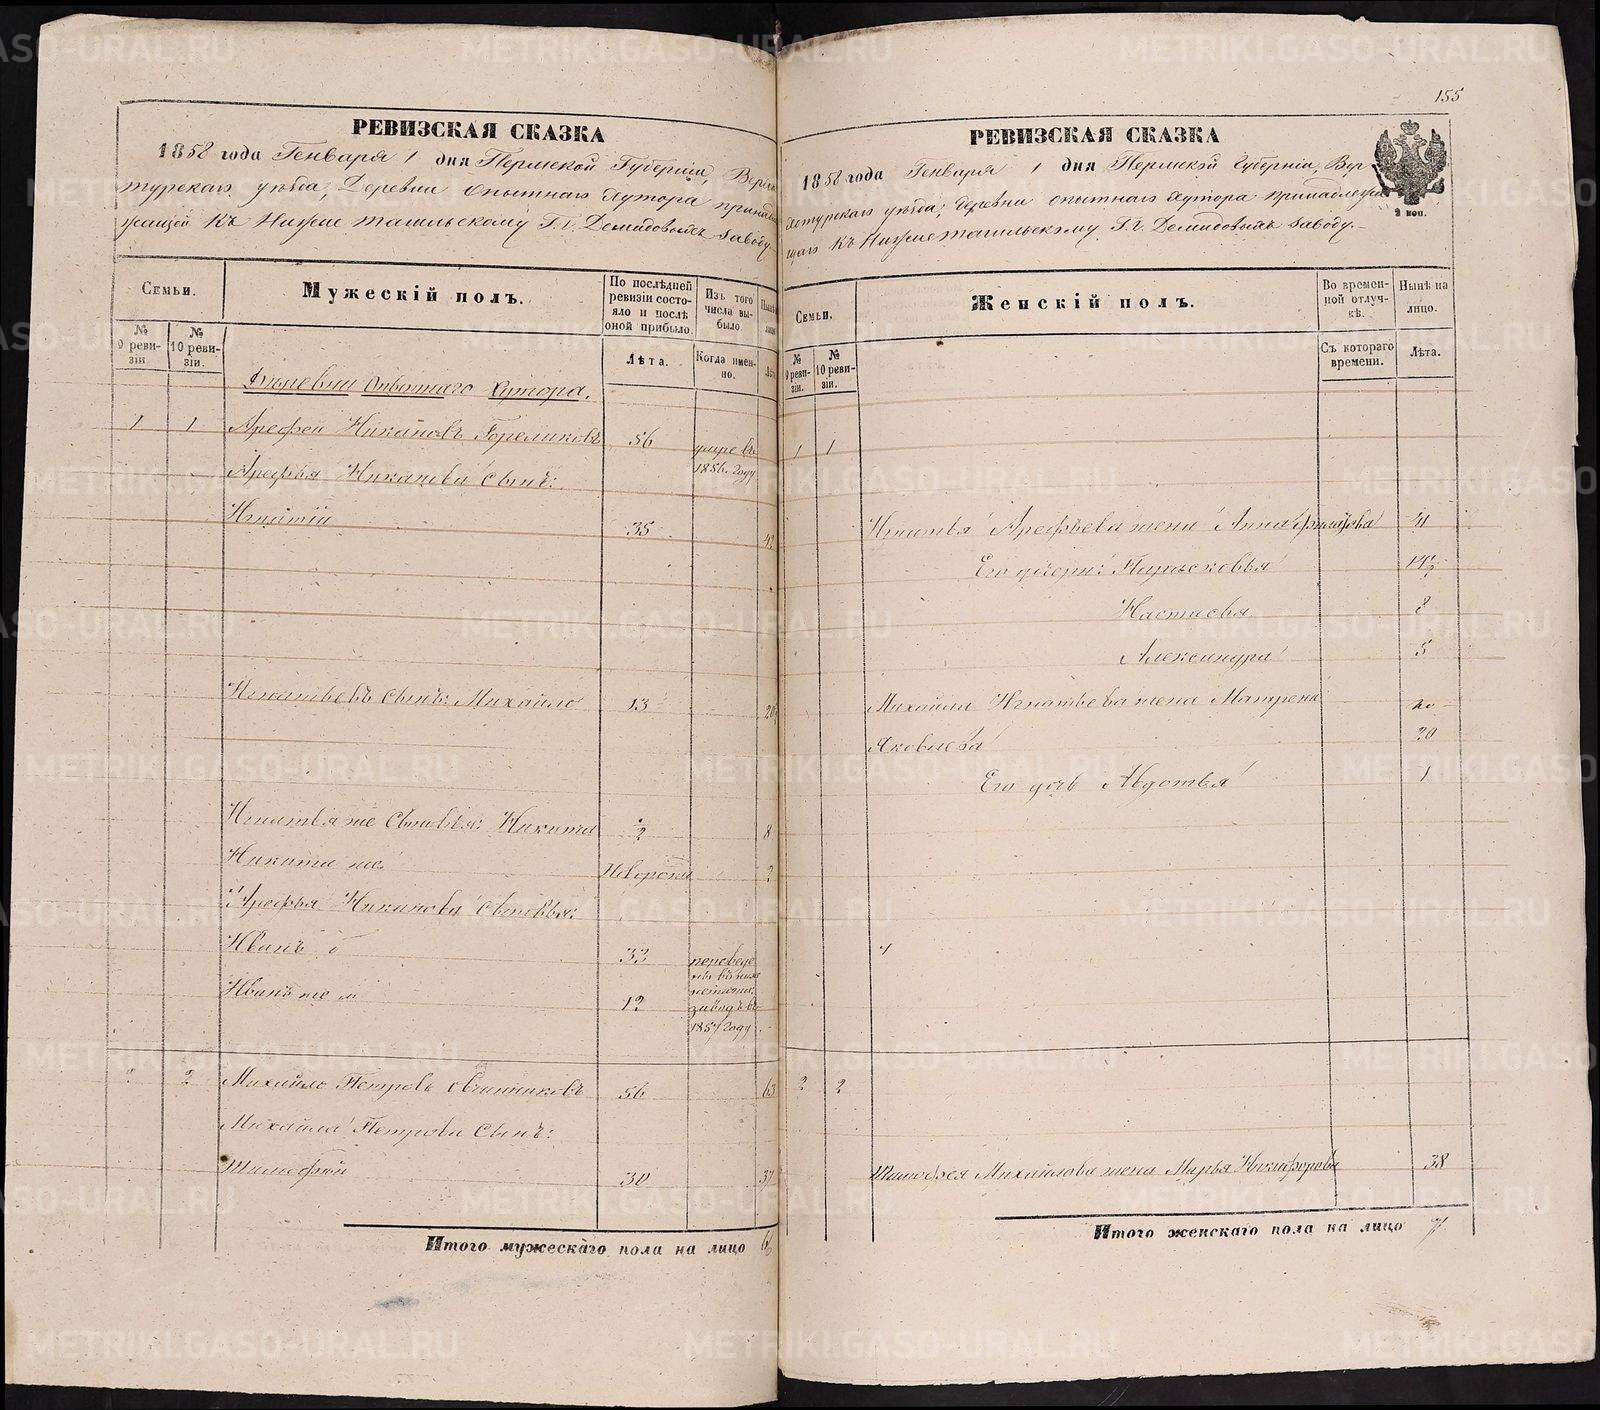 155
РЕВИЗСКАЯ СКАЗКА
1858 года Генваря 1 дня Пермской Губерніи, Верхо-
турскаго уѣзда, Деревни Опытнаго Хутора принадле
жащей къ Нижне тагильскому Г.г. Демидовыхъ заводу
Семьи.
Мужескій полъ.
По послѣдней ревизіи состояло и послѣ оной прибыло.
Изъ того числа выбыло.
Нынѣ на лицо
№ 9 ревизіи.
№ 10 ревизіи.
Лѣта.
Когда именно.
Лѣта
Деревни Опытнаго Хутора.
1 1 Арефей Никановъ Гореликовъ 56 умре въ 1856. году
Арефья Никанова сынъ:
Игнатій 35 42
Игнатьевъ сынъ: Михайло 13 20
Игнатья же сыновья: Никита 1/2 8
Никита же 2
Арефья Никанова сыновья:
Иванъ б 33 переведе
Иванъ же м 12 заводъ въ 185 году
2 2 Михайло Петровъ Овчинниковъ 56 63
Михайла Петрова сынъ:
Тимофей 30 37
Итого мужескаго пола на лицо 6
РЕВИЗСКАЯ СКАЗКА
2 коп.
1858 года Генваря 1 дня Пермской Губерніи, Вер-
хотурскаго уѣзда, Деревни опытнаго хутора принадлежа
щаго къ Нижнетагильскому Г.г. Демидовыхъ заводу.
Семьи.
Женскій полъ.
Во временной отлучкѣ.
Нынѣ на лицо.
№ 9 ревизіи.
№ 10 ревизіи.
Съ котораго времени.
Лѣта.
1 1
Игнатья Арефьева жена Анна 41
Его дочери: Парасковья 14 1/2
Настасья 8
Александра 5
Михайла Игнатьева жена Матрена
Яковлева 20
Его дочь Авдотья 1
2 2
Тимофея Михайлова жена Марья Никифорова 38
Итого женскаго пола на лицо 7
METRIKI.GASO-URAL.RU